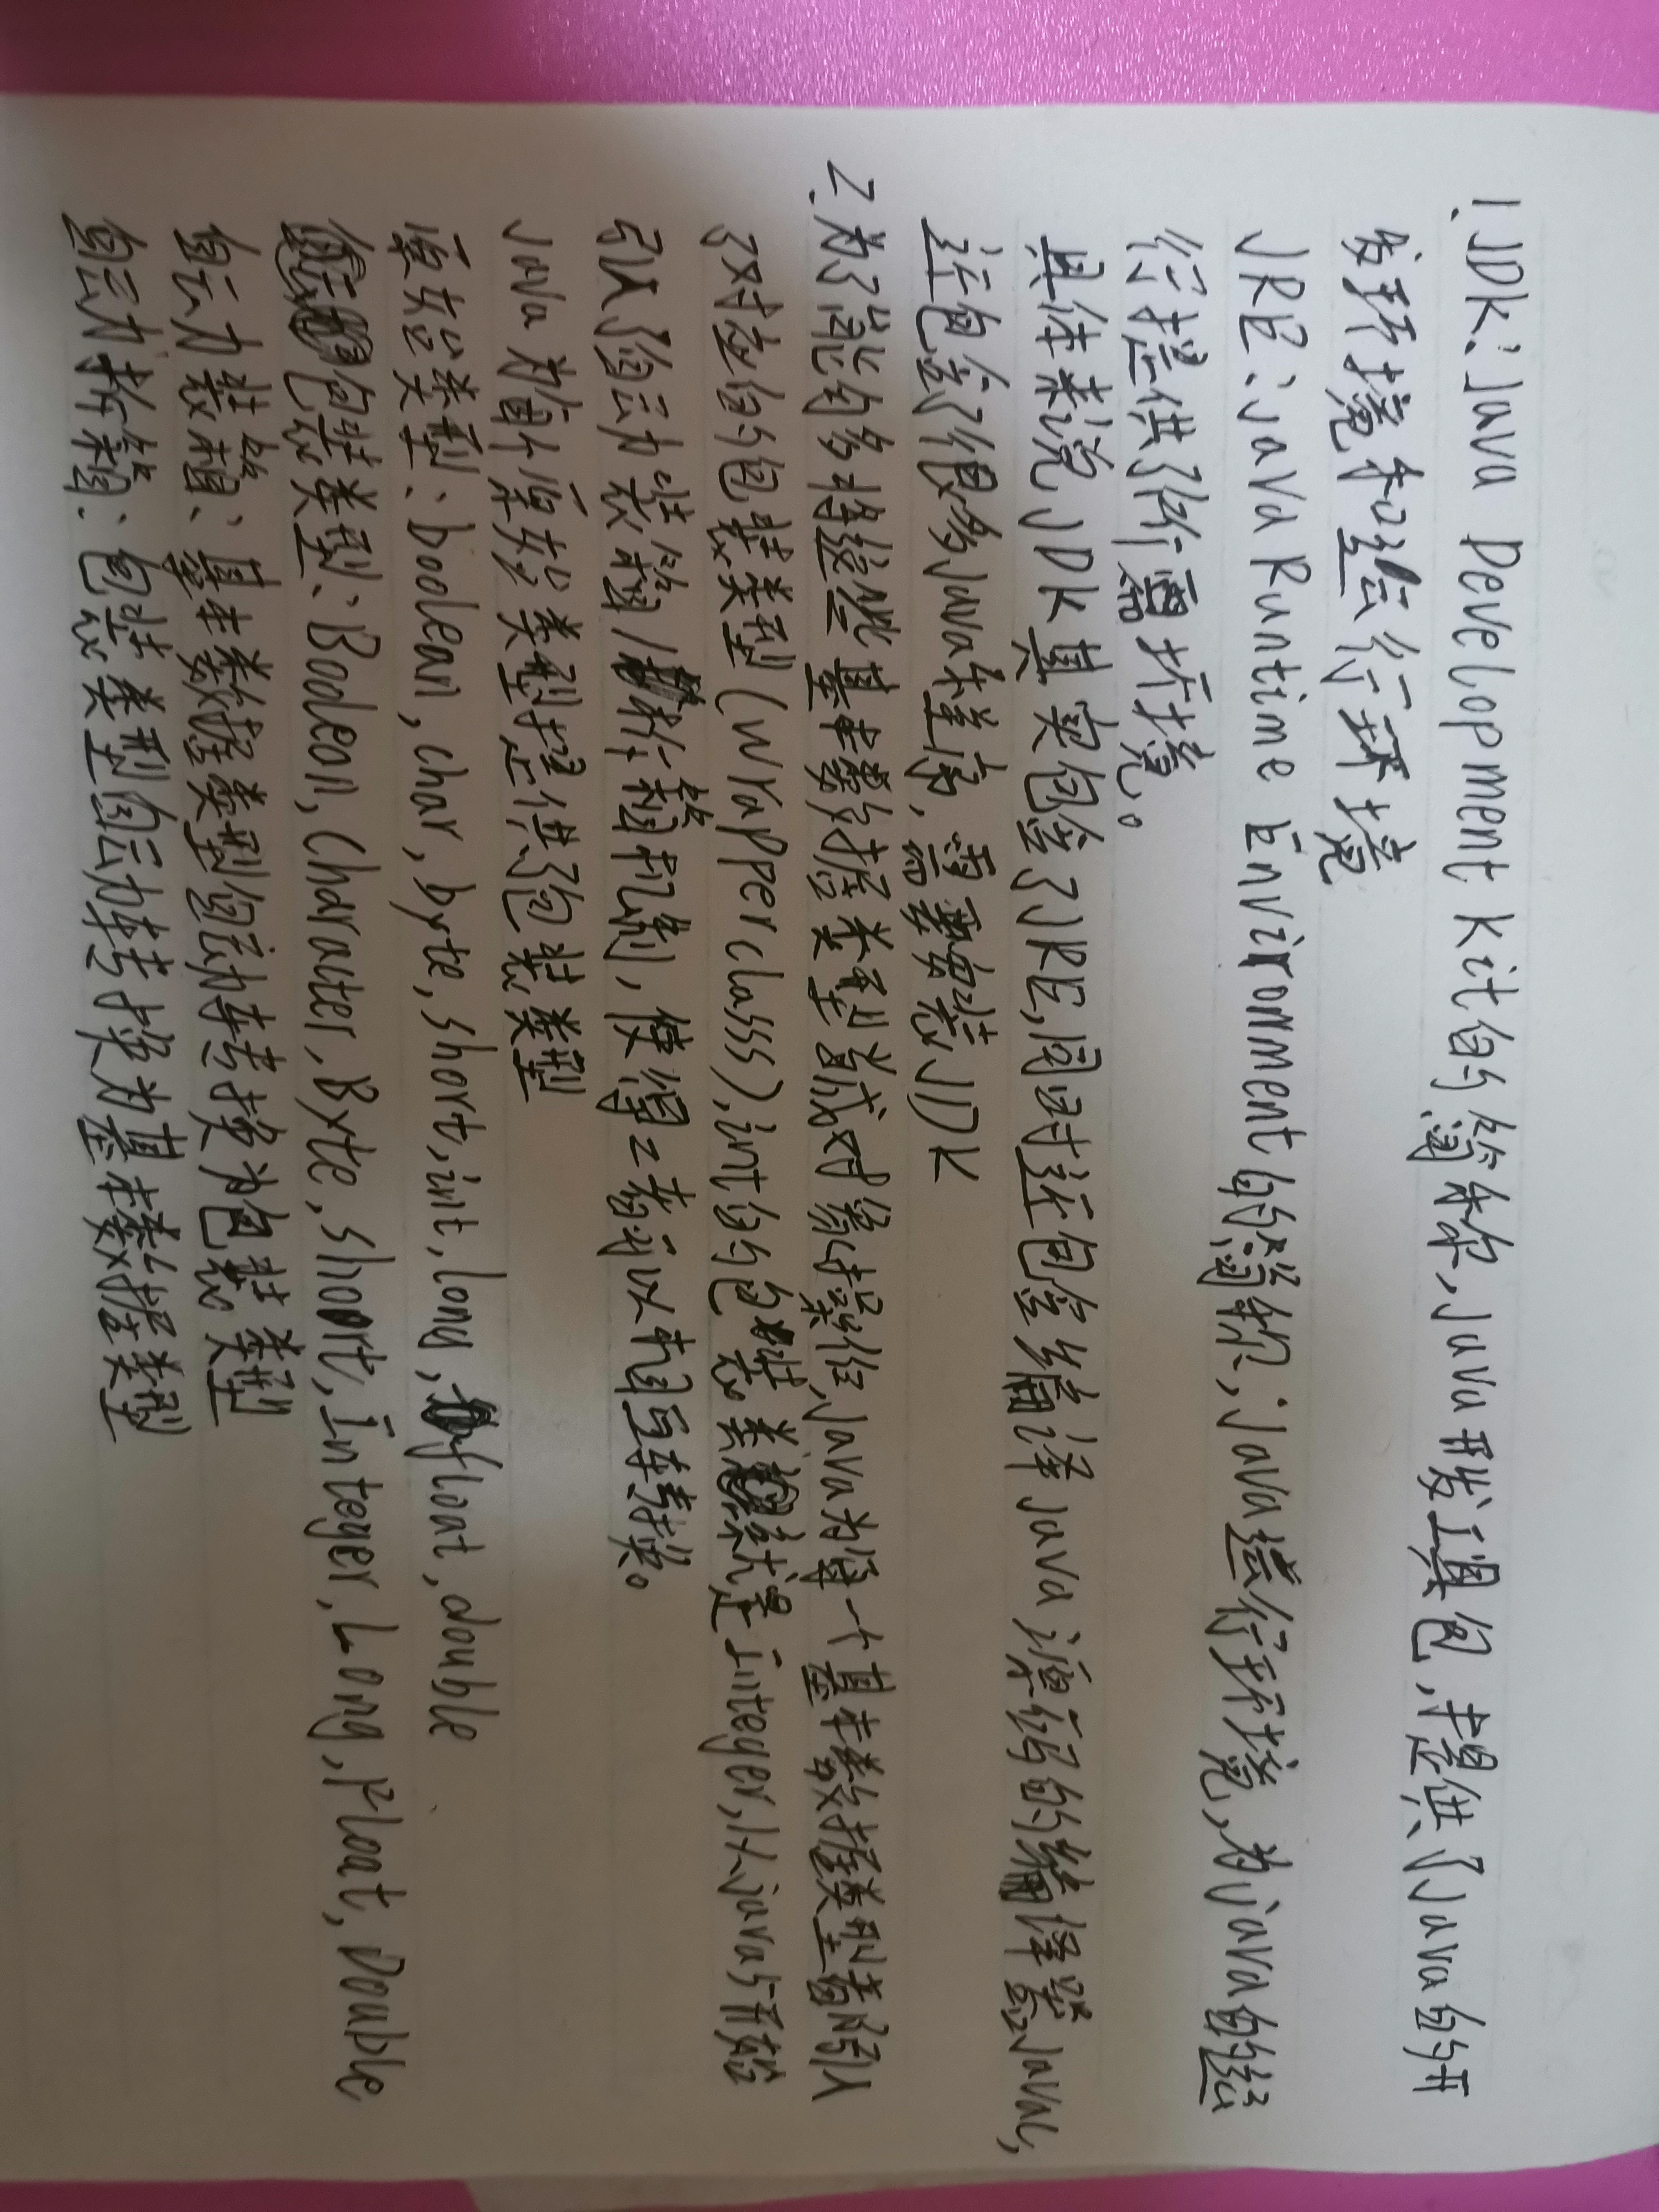 1.JDK:Java Development Kit的简称,Java开发工具包,提供了Java的开
发环境和运行环境
JRE:java Runtime Environment的简称,java运行环境,为java的运
行提供了所需环境。
具体来说JDK其实包含了JRE,同时还包含编译java源码的编译器javac,
还包含了很多java程序,需要安装JDK
2.为了能够将这些基本数据类型当成对象操作,java为每一个基本数据类型都引入
了对应的包装类型(wrapper class),int的包装类就是Integer,从java5开始
引入了自动装箱/拆箱机制,使得二者可以相互转换。
Java为每个原始类型提供了包装类型
原始类型:boolean,char,byte,short,int,long,float,double
包装类型:Boolean,Character,Byte,Short,Integer,Long,Float,Double
自动装箱:基本数据类型自动转换为包装类型
自动拆箱:包装类型自动转换为基本数据类型